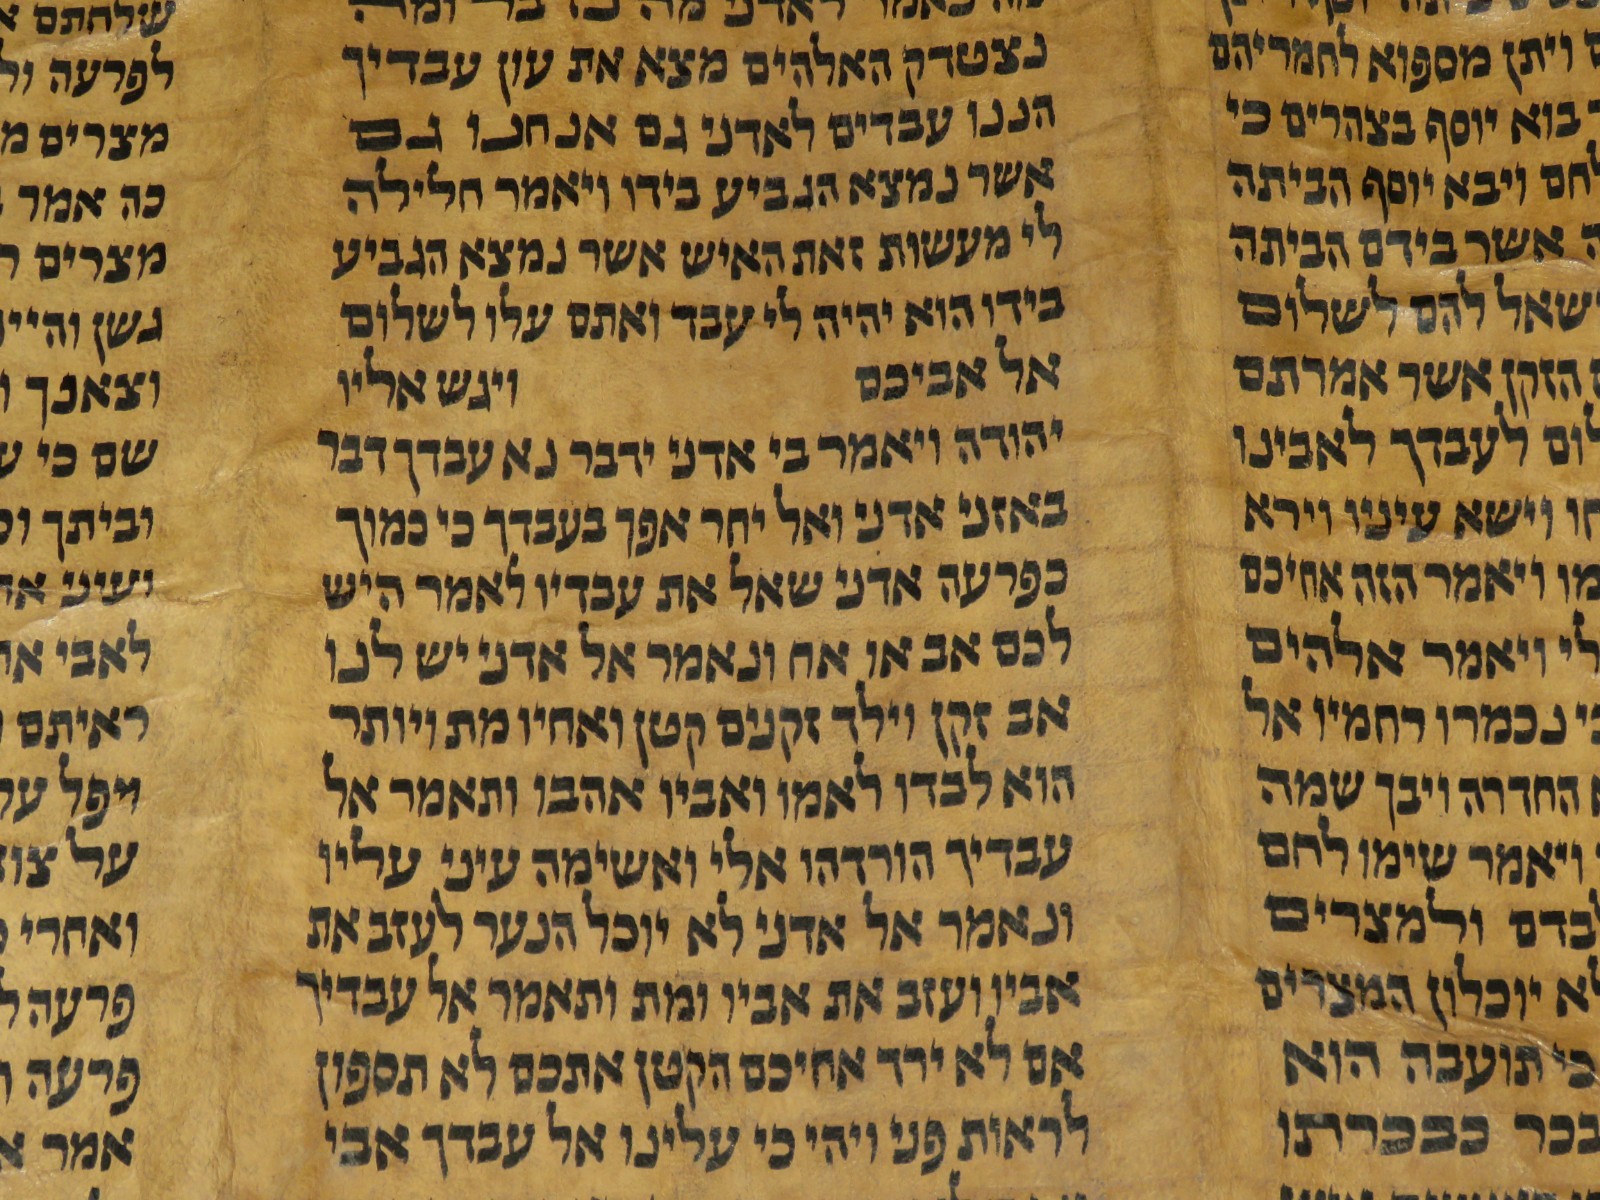 ם ויתן מספוא לחמריהם
בוא יוסף בצהרים כי
לחם ויבא יוסף הביתה
ה אשר בידם הביתה
ישאל להם לשלום
הזקן אשר אמרתם
לום לעבדך לאבינו
חו וישא עיניו וירא
מו ויאמר הזה אחיכם
לי ויאמר אלהים
כי נכמרו רחמיו אל
החדרה ויבך שמה
ויאמר שימו לחם
לבדם ולמצרים
לא יוכלון המצרים
כי תועבה הוא
בכר כבכרתו
נאמר לאדני מה נדבר ומה
נצטדק האלהים מצא את עון עבדיך
הננו עבדים לאדני גם אנחנו גם
אשר נמצא הגביע בידו ויאמר חלילה
לי מעשות זאת האיש אשר נמצא הגביע
בידו הוא יהיה לי עבד ואתם עלו לשלום
אל אביכם ויגש אליו
יהודה ויאמר בי אדני ידבר נא עבדך דבר
באזני אדני ואל יחר אפך בעבדך כי כמוך
כפרעה אדני שאל את עבדיו לאמר היש
לכם אב או אח ונאמר אל אדני יש לנו
אב זקן וילד זקנים קטן ואחיו מת ויותר
הוא לבדו לאמו ואביו אהבו ותאמר אל
עבדיך הורדהו אלי ואשימה עיני עליו
ונאמר אל אדני לא יוכל הנער לעזב את
אביו ועזב את אביו ומת ותאמר אל עבדיך
אם לא ירד אחיכם הקטן אתכם לא תספון
לראות פני ויהי כי עלינו אל עבדך אבי
שלחתם א
לפרעה ול
מצרים מ
כה אמר
מצרים ר
גשן והיי
וצאנך ו
שם כי ע
וביתך וכ
ועיני אח
לאבי את
ראיתם ו
ויפל על
על צוא
ואחרי כ
פרעה ל
פרעה ו
אמר א